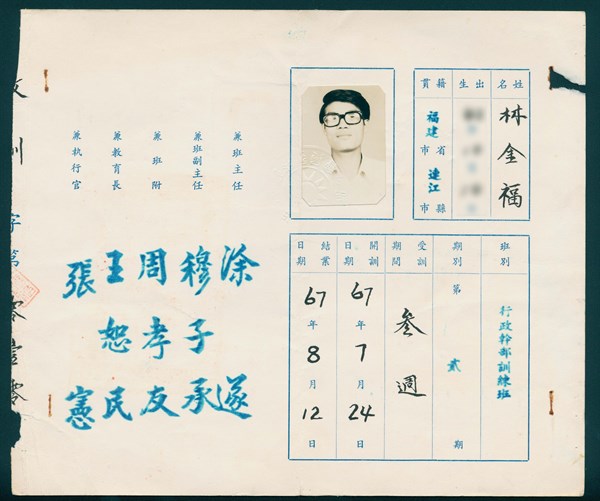 姓名
林金福
出生
籍貫
福建省市
連江縣市
班別
行政幹部訓練班
期別
第貳期
受訓期間
叁週
開訓日期
67年7月24日
結業日期
67年8月12日
兼班主任
涂遂
兼班副主任
穆子承
兼班附
周孝友
兼教育長
王恕民
兼執行官
張憲